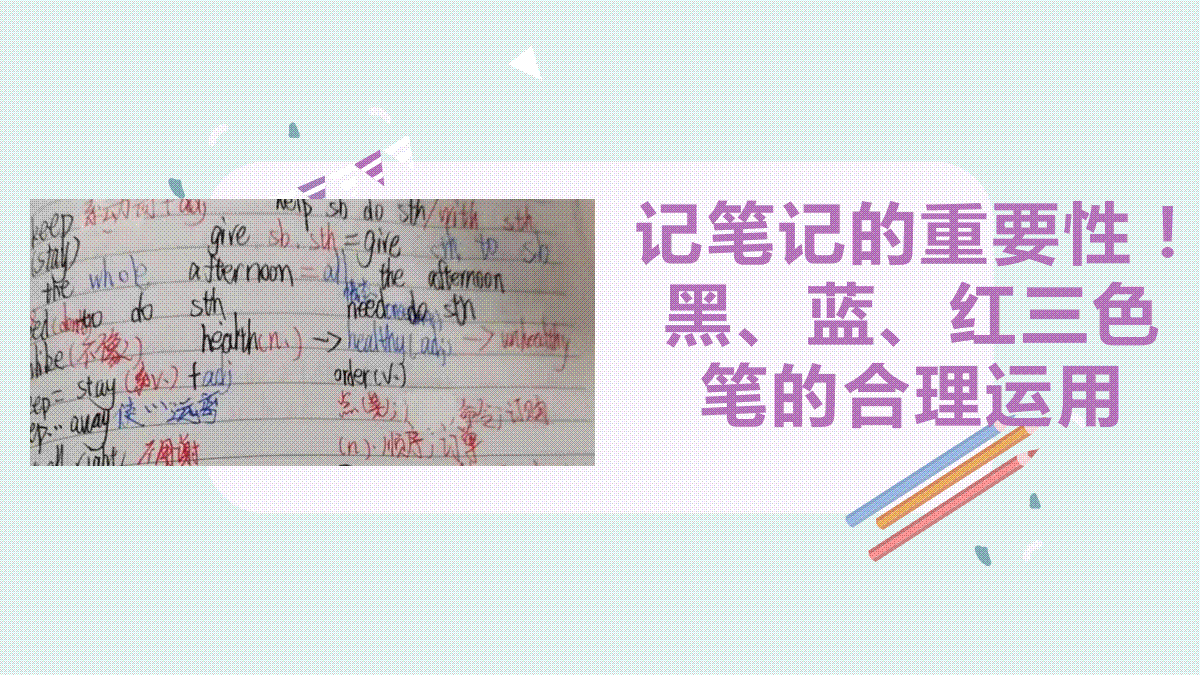 记笔记的重要性！
黑、蓝、红三色
笔的合理运用
keep 系动词+adj help sb do sth/with sth
(stay) give sb. sth = give sth to sb
the whole afternoon = all the afternoon
to do sth need do sth
(不像) health(n.) → healthy(adj) → unhealthy
= stay (系v.) + adj order(v.)
away 使…远离 点(菜);命令;订购
不用谢 (n). 顺序;订单